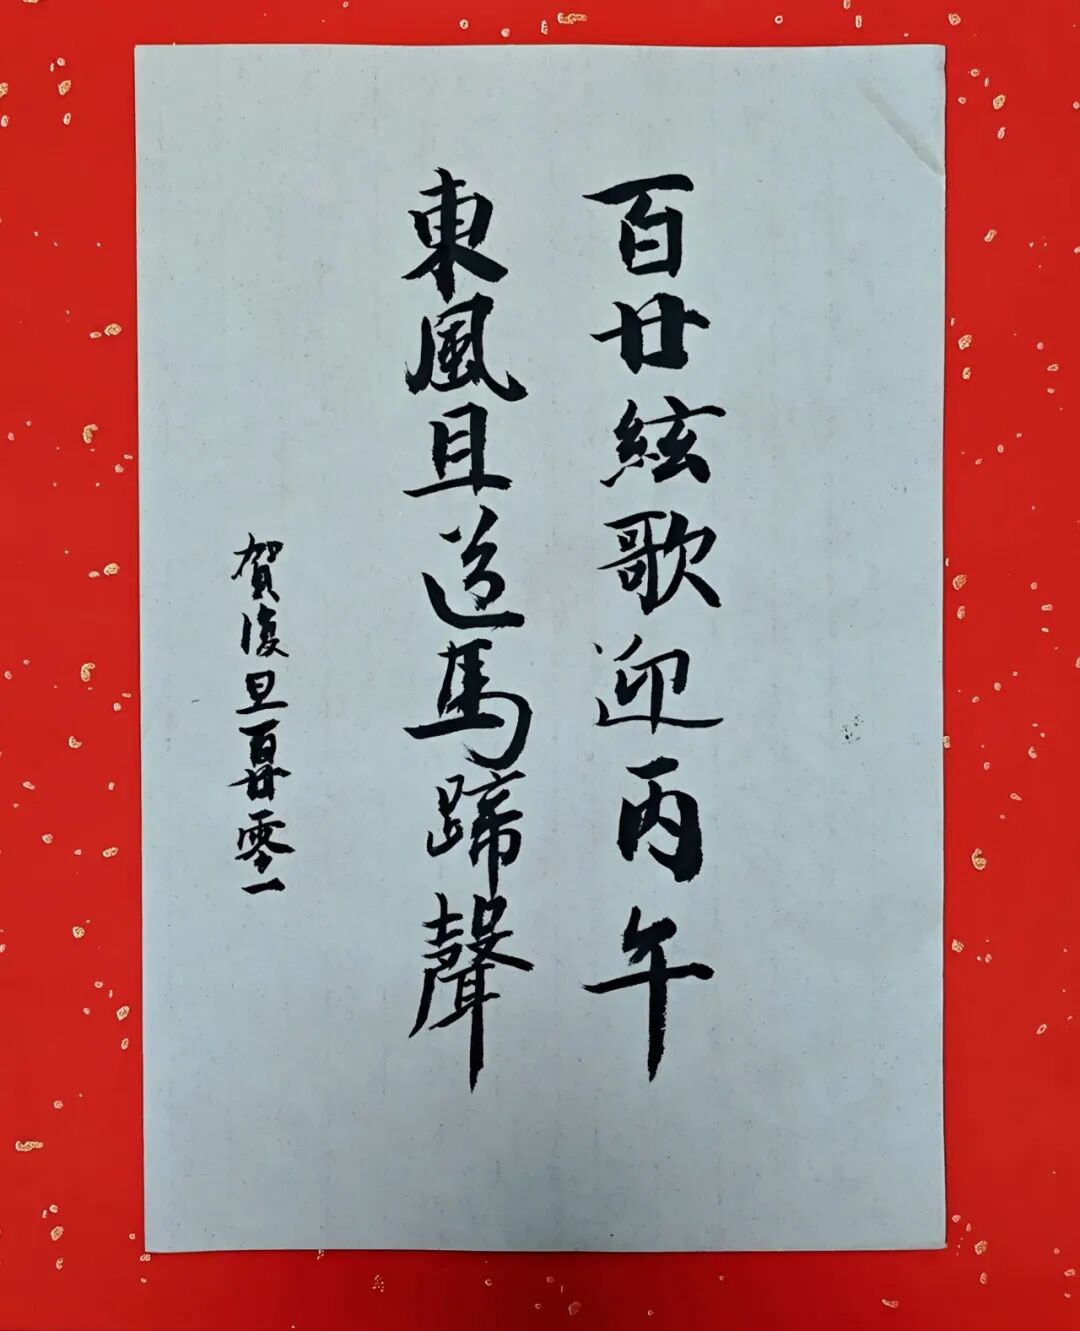 百廿絃歌迎丙午
東風且送馬蹄聲
賀復旦百廿零一